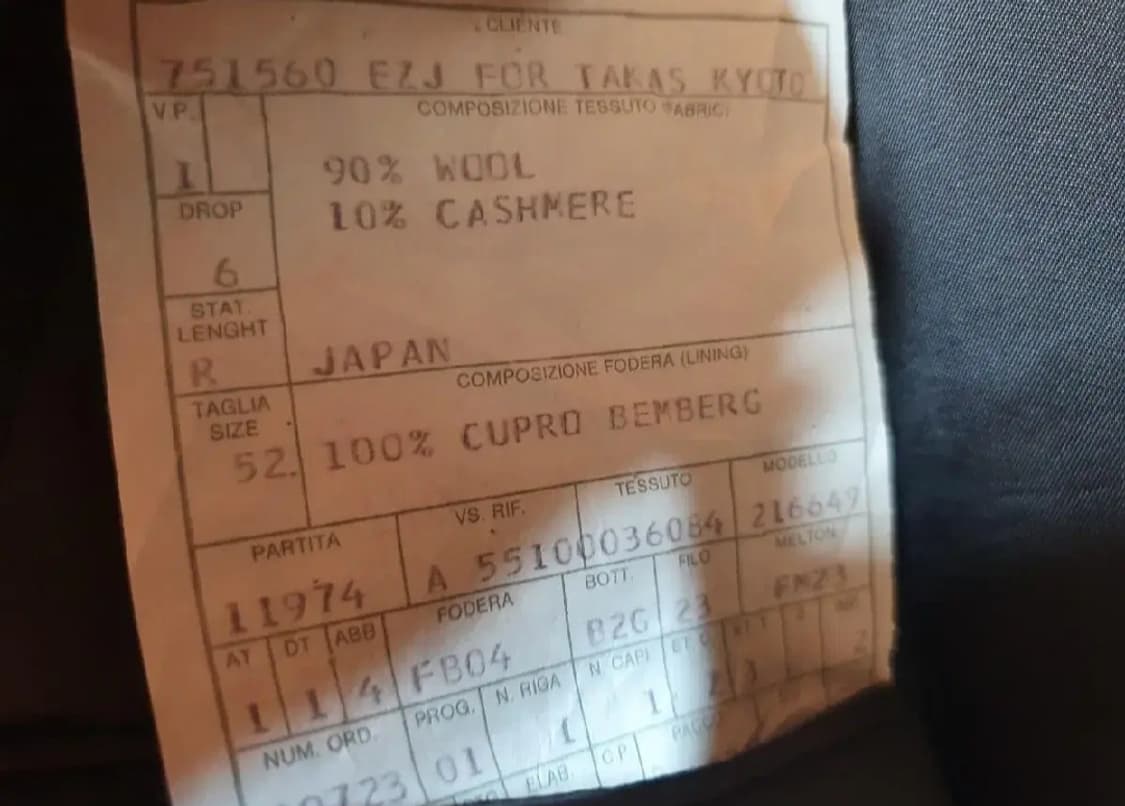 CLIENTE
751560 EZJ FOR TAKAS KYOTO
V.P.
COMPOSIZIONE TESSUTO (FABRIC)
1
90% WOOL
10% CASHMERE
DROP
6
STAT.
LENGHT
R
JAPAN
COMPOSIZIONE FODERA (LINING)
TAGLIA
SIZE
52.
100% CUPRO BEMBERG
PARTITA
VS. RIF.
TESSUTO
MODELLO
11974
A 55100036084
216649
AT
DT
ABB
FODERA
BOTT.
FILO
MELTON
1
1
4
FB04
B2G
23
NUM. ORD.
PROG.
N. RIGA
N. CAPI
0723
01
1
1
ELAB.
CP